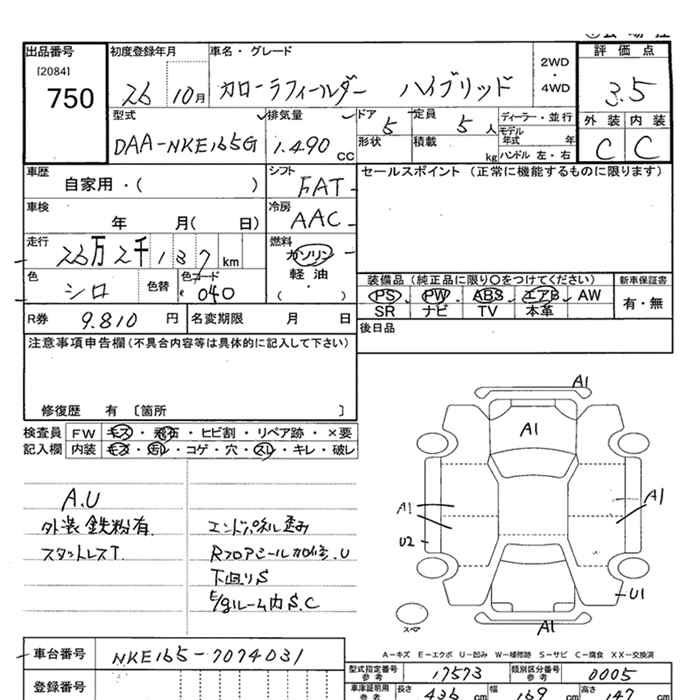 出品番号 初度登録年月 車名・グレード 2WD・4WD 評価点
[2084]
750 26 10月 カローラフィールダー ハイブリッド 3.5
型式 排気量 ドア 定員 ディーラー・並行 外装 内装
DAA-NKE165G 1.490 CC 5 5人 モデル年式 年 C C
形状 積載 kg ハンドル 左・右
車歴 シフト セールスポイント (正常に機能するものに限ります)
自家用・( ) FAT
車検 冷房
年 月( 日) AAC
走行 燃料
26万2千137km ガソリン
軽油
・
( )
色 色替 色コード 装備品 (純正品に限り〇をつけてください) 新車保証書
シロ 040 PS PW ABS エアB AW 有・無
SR ナビ TV 本革
R券 9.810 円 名変期限 月 日 後日品
注意事項申告欄(不具合内容等は具体的に記入して下さい)
修復歴 有 〔箇所 〕
検査員 FW キズ・飛石・ヒビ割・リペア跡・×要
記入欄 内装 キズ・汚レ・コゲ・穴・スレ・キレ・破レ
A.U
外装鉄粉有. エンドパネル歪み
スタットレスT. Rフロアシール加修.U
下廻りS
E/gルーム内S.C
A1
A1
A1
A1
U2
U1
A1
スペア
A－キズ E－エクボ U－凹み W－補修跡 S－サビ C－腐食 XX－交換済
車台番号 NKE165-7074031
型式指定番号 参考 17573 類別区分番号 参考 0005
登録番号
車庫証明用 参考 長さ 436 cm 幅 169 cm 高さ 147 cm